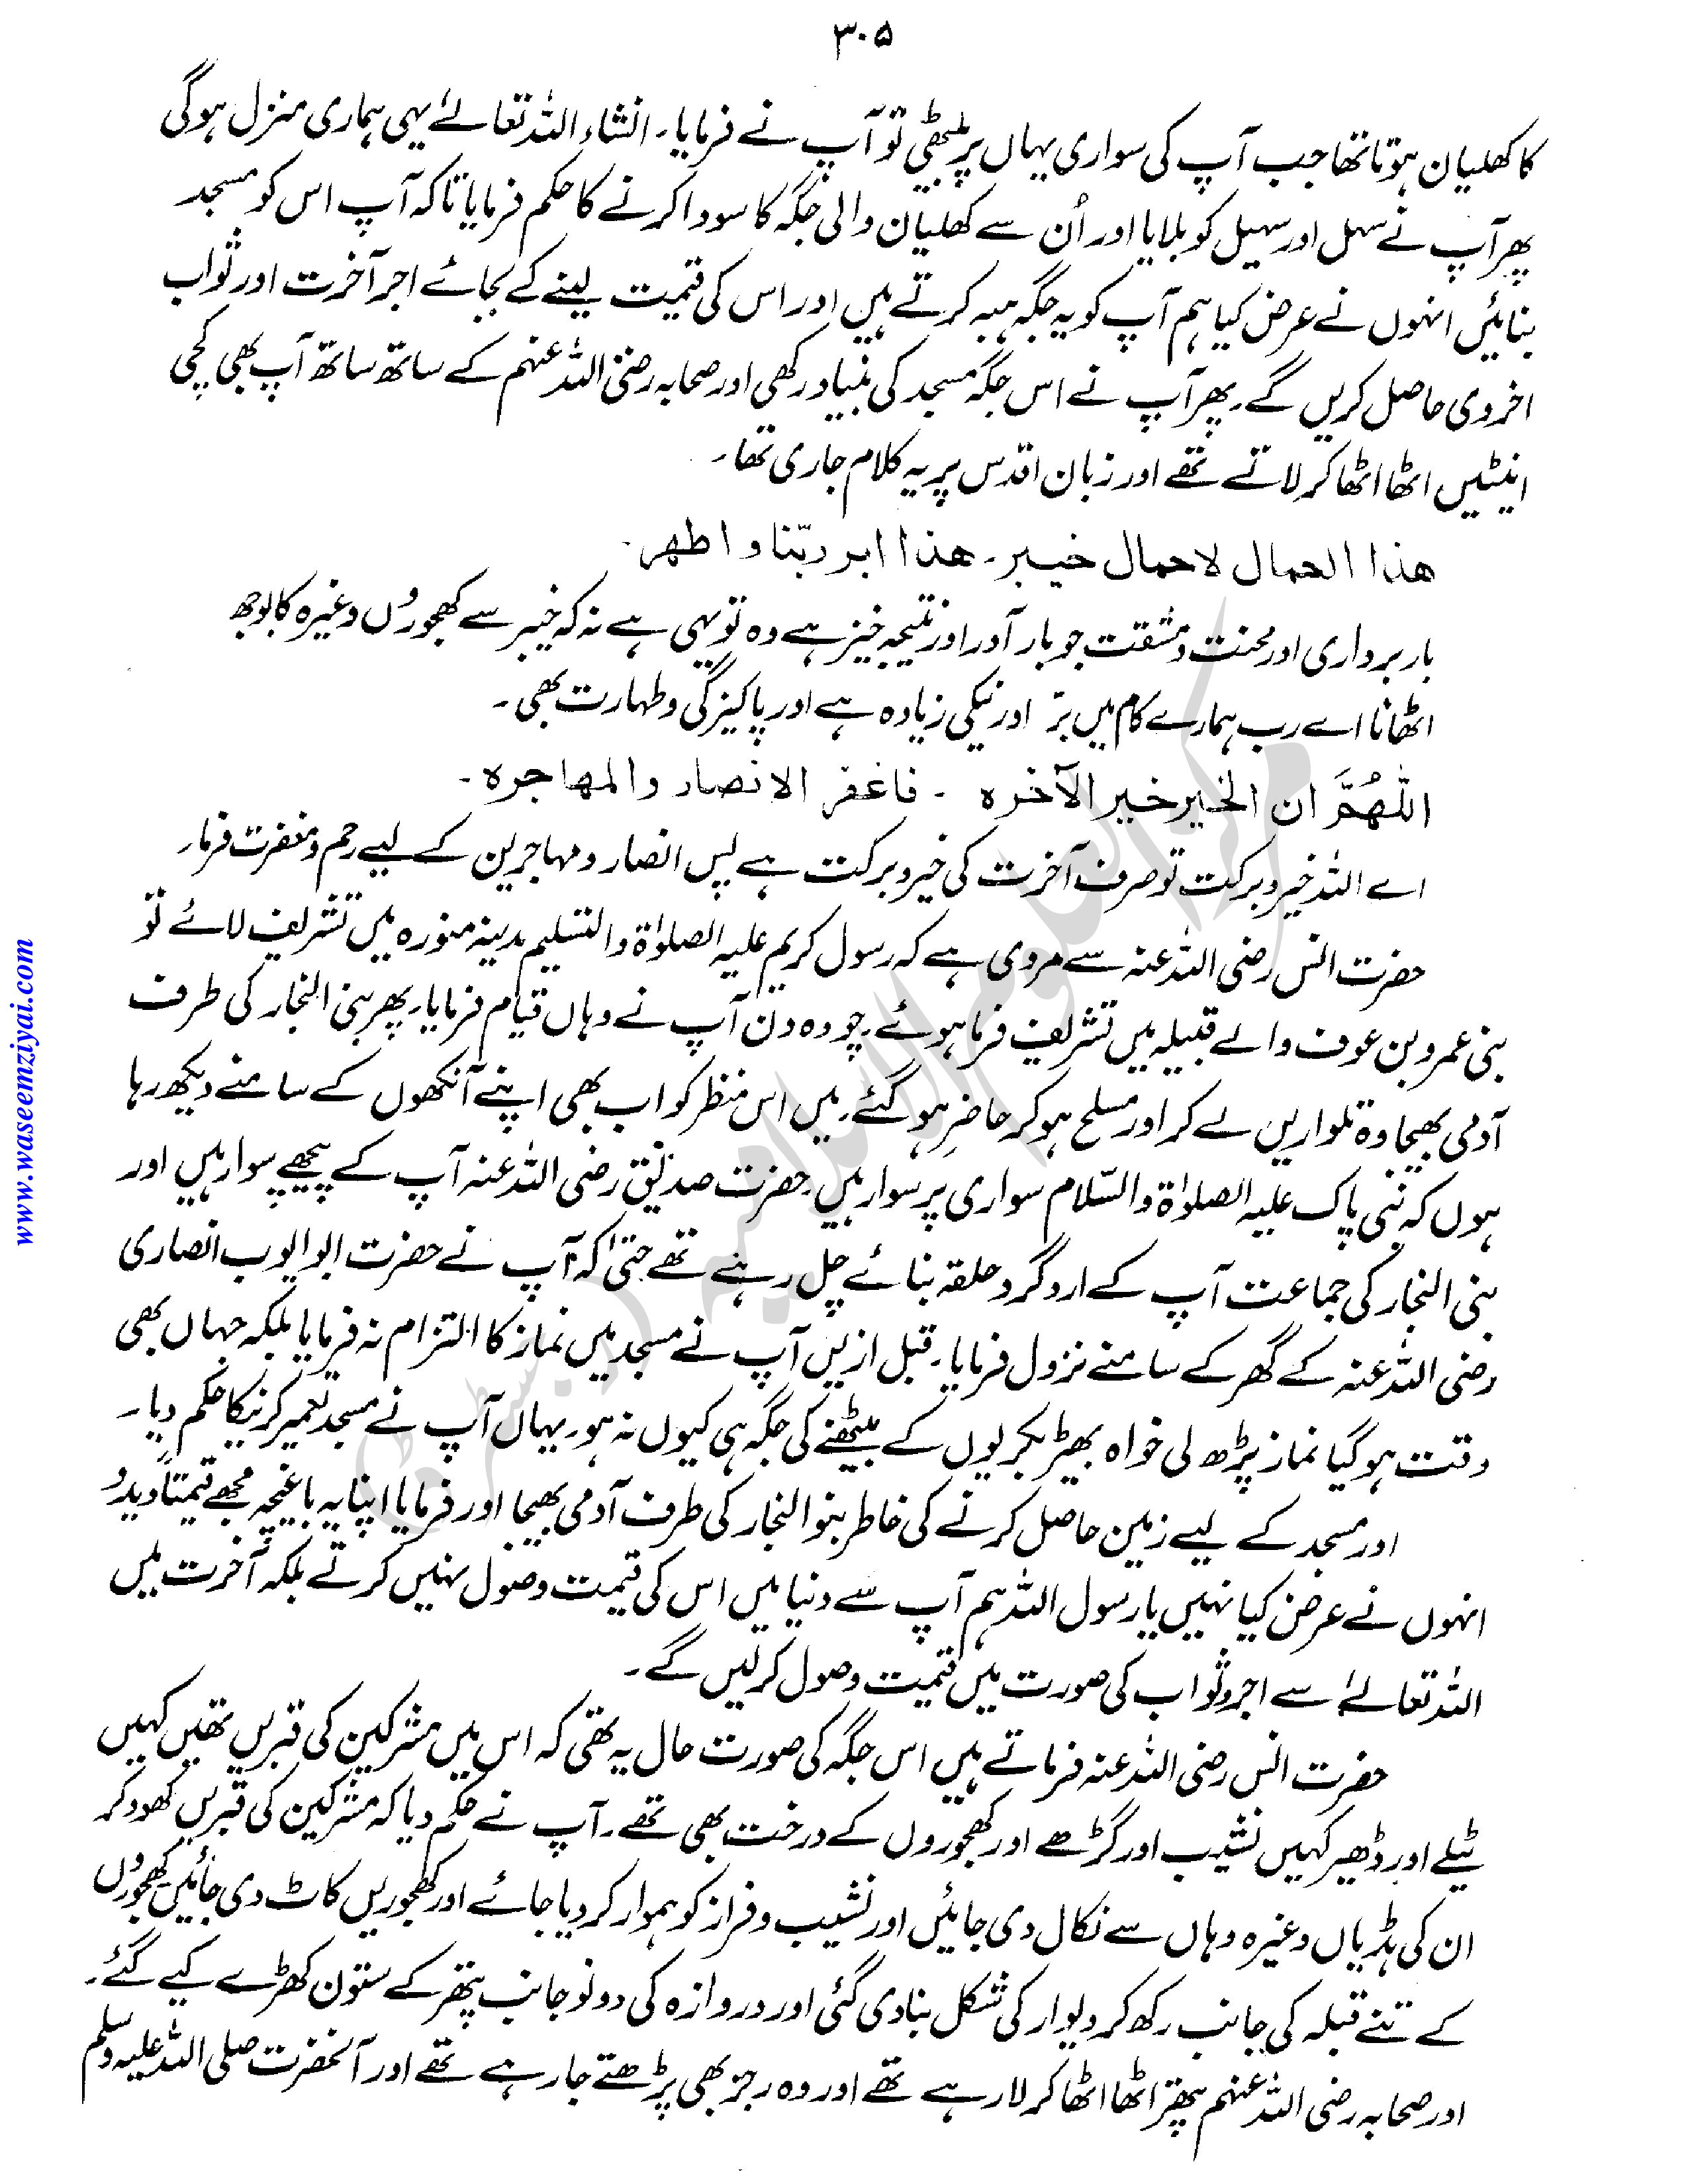 ۳۰۵
کا کھلیان ہوتا تھا جب آپ کی سواری یہاں پر بیٹھی تو آپ نے فرمایا۔ انشاء اللہ تعالےٰ یہی ہماری منزل ہوگی
پھر آپ نے سہل اور سہیل کو بلایا اور اُن سے کھلیان والی جگہ کا سودا کرنے کا حکم فرمایا تاکہ آپ اس کو مسجد
بنائیں انہوں نے عرض کیا ہم آپ کو یہ جگہ ہبہ کرتے ہیں اور اس کی قیمت لینے کے بجائے اجر آخرت اور ثواب
اخروی حاصل کریں گے۔ پھر آپ نے اس جگہ مسجد کی بنیاد رکھی اور صحابہ رضی اللہ عنہم کے ساتھ ساتھ آپ بھی کچی
اینٹیں اٹھا اٹھا کر لاتے تھے اور زبان اقدس پر یہ کلام جاری تھا۔
هذا الحمال لاحمال خیبر۔ هذا ابر ربّنا و اطهر۔
بار برداری اور محنت و مشقت جو بار آور اور نتیجہ خیز ہے وہ تو یہی ہے نہ کہ خیبر سے کھجوروں وغیرہ کا بوجھ
اٹھانا اے رب ہمارے کام میں برّ اور نیکی زیادہ ہے اور پاکیزگی و طہارت بھی۔
اللّٰهُمَّ ان الخیر خیر الآخره ۔ فاغفر الانصار والمهاجره ۔
اے اللہ خیر و برکت تو صرف آخرت کی خیر و برکت ہے پس انصار و مہاجرین کے لیے رحم و مغفرت فرما۔
حضرت انس رضی اللہ عنہ سے مروی ہے کہ رسول کریم علیہ الصلوٰۃ والتسلیم مدینہ منورہ میں تشریف لائے تو
بنی عمرو بن عوف والے قبیلہ میں تشریف فرما ہوئے۔ چودہ دن آپ نے وہاں قیام فرمایا۔ پھر بنی النجار کی طرف
آدمی بھیجا وہ تلواریں لے کر اور مسلح ہو کر حاضر ہو گئے۔ میں اس منظر کو اب بھی اپنے آنکھوں کے سامنے دیکھ رہا
ہوں کہ نبی پاک علیہ الصلوٰۃ والسّلام سواری پر سوار ہیں۔ حضرت صدیق رضی اللہ عنہ آپ کے پیچھے سوار ہیں اور
بنی النجار کی جماعت آپ کے ارد گرد حلقہ بنائے چل رہے تھے حتیٰ کہ آپ نے حضرت ابو ایوب انصاری
رضی اللہ عنہ کے گھر کے سامنے نزول فرمایا۔ قبل ازیں آپ نے مسجد میں نماز کا التزام نہ فرمایا بلکہ جہاں بھی
وقت ہو گیا نماز پڑھ لی خواہ بھیڑ بکریوں کے بیٹھنے کی جگہ ہی کیوں نہ ہو۔ یہاں آپ نے مسجد تعمیر کرنیکا حکم دیا۔
اور مسجد کے لیے زمین حاصل کرنے کی خاطر بنو النجار کی طرف آدمی بھیجا اور فرمایا اپنا یہ باغیچہ مجھے قیمتاً دیدو
انہوں نے عرض کیا نہیں یا رسول اللہ ہم آپ سے دنیا میں اس کی قیمت وصول نہیں کرتے بلکہ آخرت میں
اللہ تعالےٰ سے اجر و ثواب کی صورت میں قیمت وصول کر لیں گے۔
حضرت انس رضی اللہ عنہ فرماتے ہیں اس جگہ کی صورت حال یہ تھی کہ اس میں مشرکین کی قبریں تھیں کہیں
ٹیلے اور ڈھیر کہیں نشیب اور گڑھے اور کھجوروں کے درخت بھی تھے۔ آپ نے حکم دیا کہ مشرکین کی قبریں کھود کر
ان کی ہڈیاں وغیرہ وہاں سے نکال دی جائیں اور نشیب و فراز کو ہموار کر دیا جائے اور کھجوریں کاٹ دی جائیں کھجوروں
کے تنے قبلہ کی جانب رکھ کر دیوار کی شکل بنا دی گئی اور دروازہ کی دونو جانب پتھر کے ستون کھڑے کیے گئے۔
اور صحابہ رضی اللہ عنہم پتھر اٹھا اٹھا کر لا رہے تھے اور وہ رجز بھی پڑھتے جا رہے تھے اور آنحضرت صلی اللہ علیہ وسلم
www.waseemziyai.com